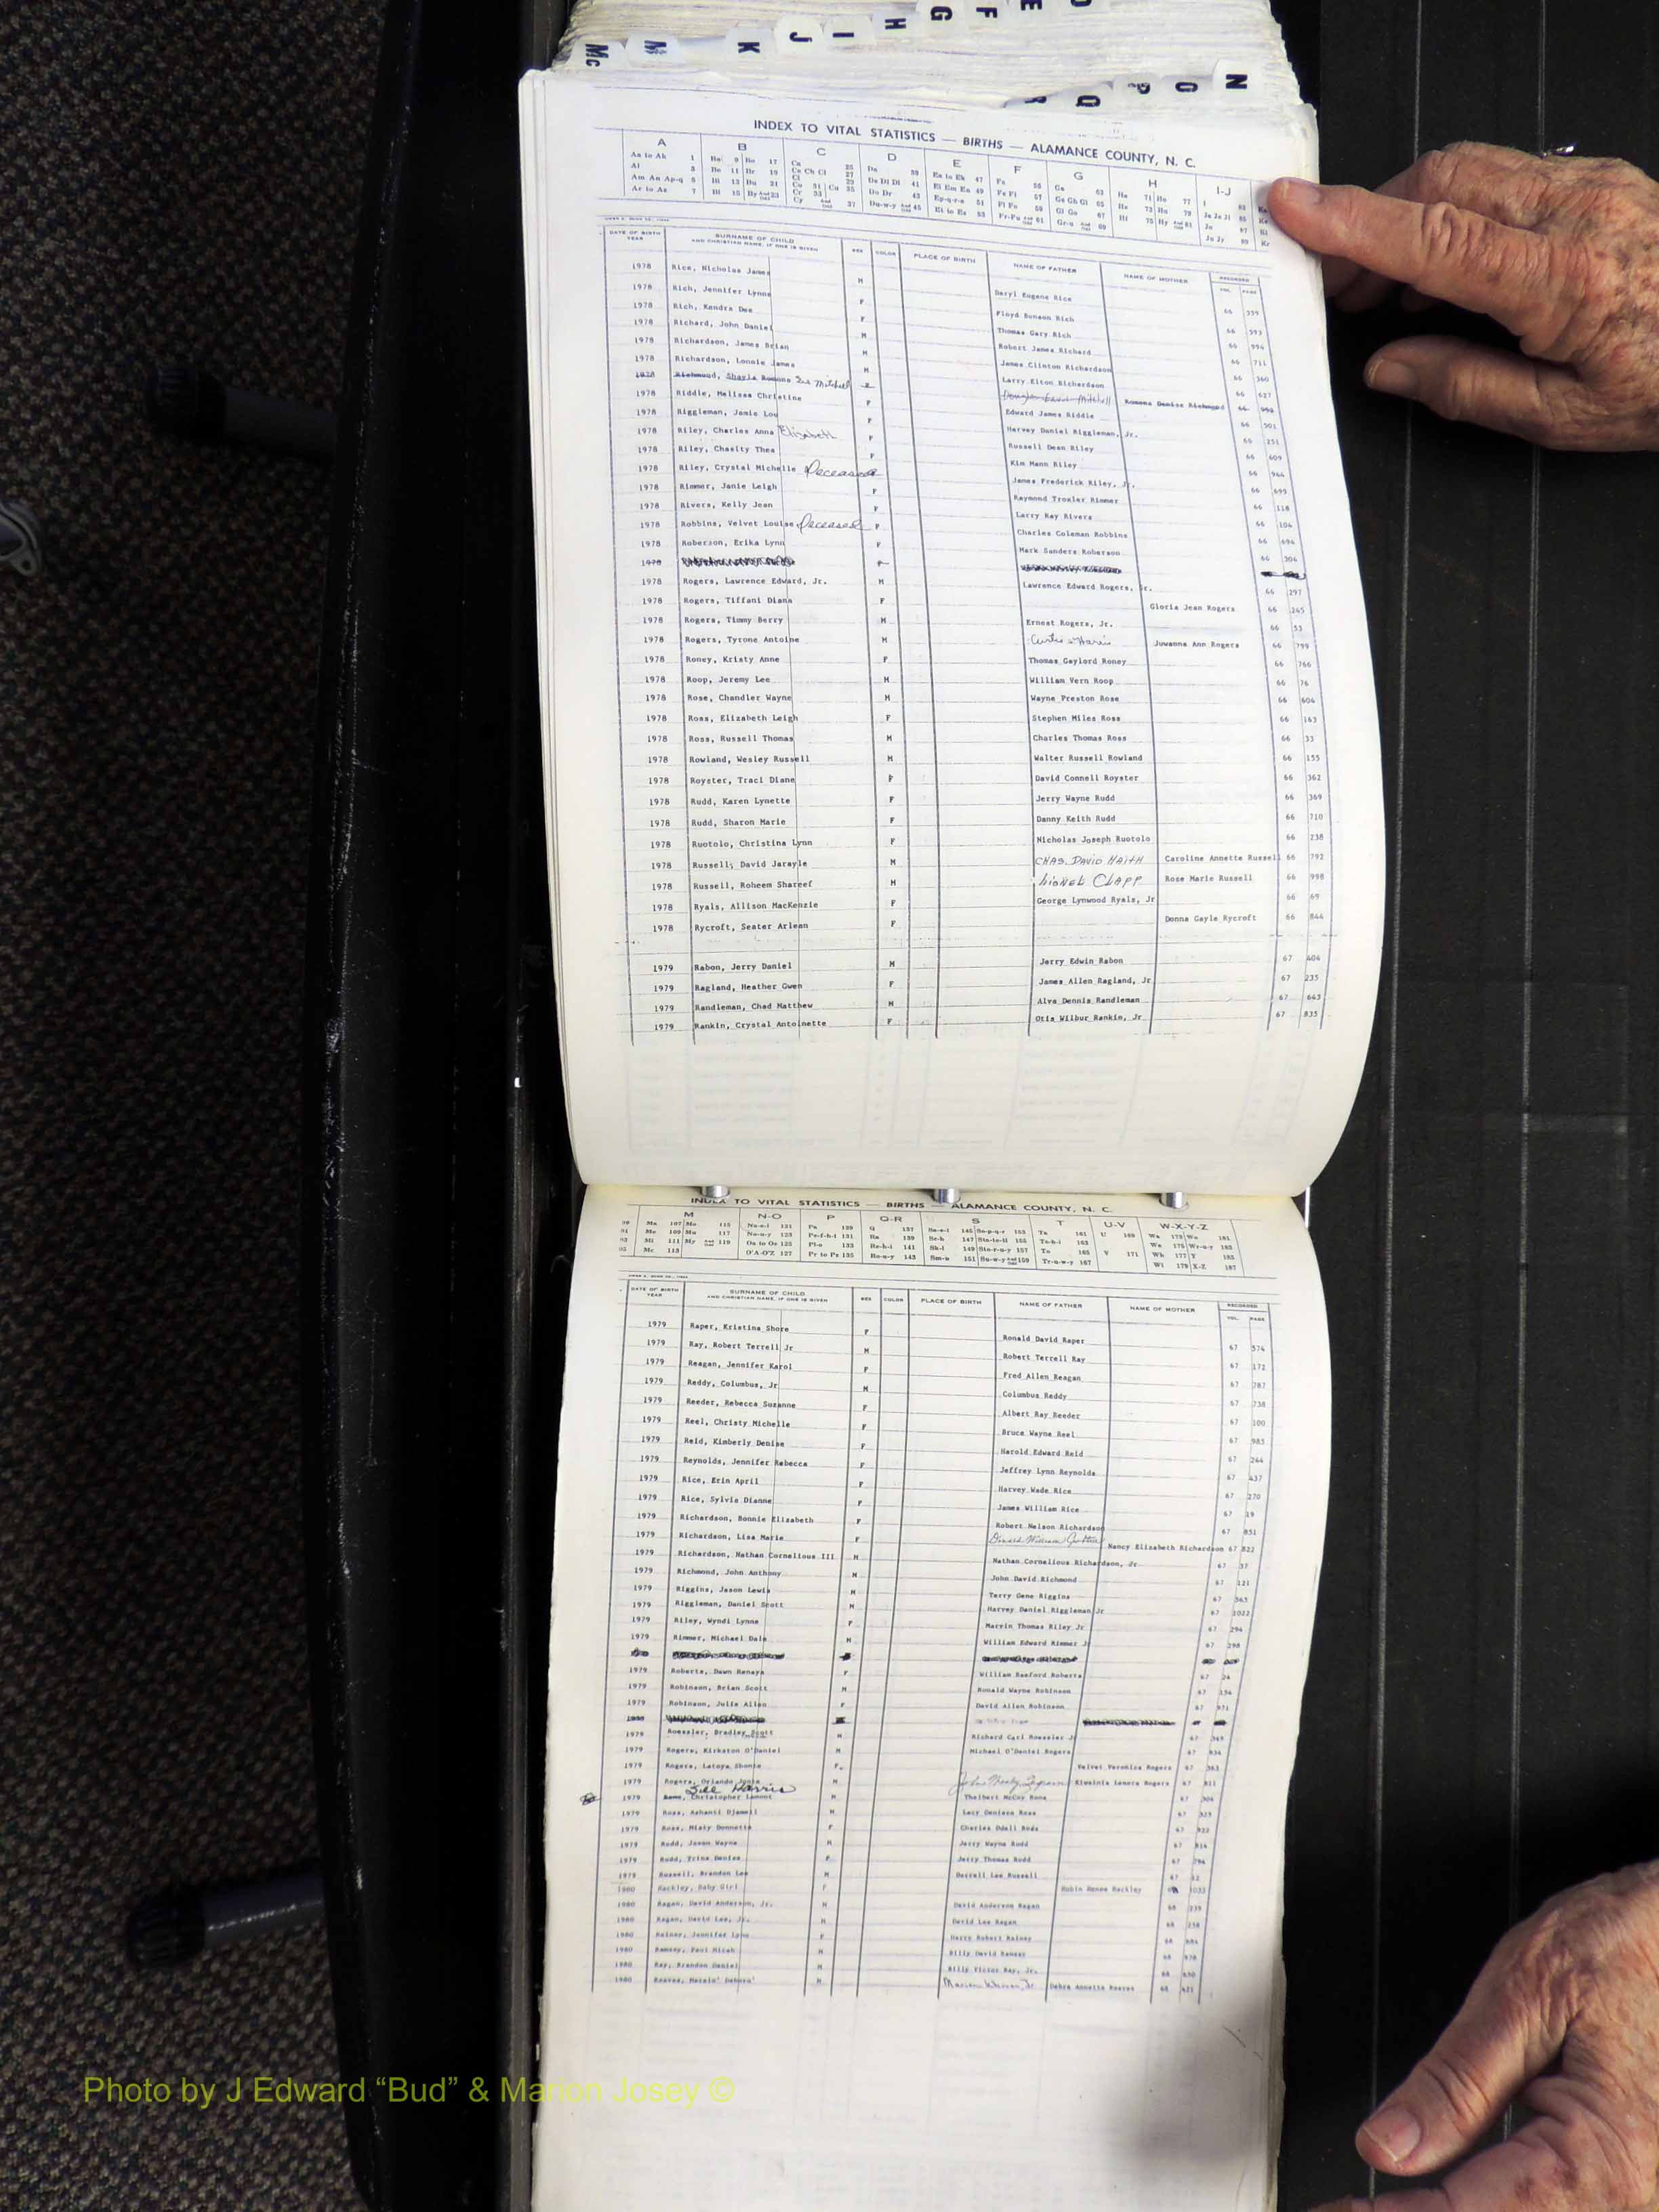 Mc M K J I H G F E D
R Q P O N
INDEX TO VITAL STATISTICS — BIRTHS — ALAMANCE COUNTY, N. C.
A B C D E F G H I-J
DATE OF BIRTH YEAR SURNAME OF CHILD AND CHRISTIAN NAME, IF ONE IS GIVEN SEX COLOR PLACE OF BIRTH NAME OF FATHER NAME OF MOTHER RECORDED VOL. PAGE
1978 Rice, Nicholas James M Daryl Eugene Rice 66 359
1978 Rich, Jennifer Lynne F Floyd Benson Rich 66 593
1978 Rich, Kendra Dee F Thomas Gary Rich 66 994
1978 Richard, John Daniel M Robert James Richard 66 711
1978 Richardson, James Brian M James Clinton Richardson 66 360
1978 Richardson, Lonnie James M Larry Elton Richardson 66 627
1978 Richmond, Shayla Romona See Mitchell F Douglas Mitchell Romona Denise Richmond 66
1978 Riddle, Melissa Christine F Edward James Riddle 66 501
1978 Riggleman, Jamie Lou F Harvey Daniel Riggleman, Jr. 66 251
1978 Riley, Charles Anna Elizabeth F Russell Dean Riley 66 609
1978 Riley, Chasity Thea F Kim Mann Riley 66 966
1978 Riley, Crystal Michelle Deceased James Frederick Riley, Jr. 66 695
1978 Rimmer, Janie Leigh F Raymond Troxler Rimmer 66 118
1978 Rivers, Kelly Jean F Larry Ray Rivers 66 104
1978 Robbins, Velvet Louise Deceased F Charles Coleman Robbins 66 694
1978 Roberson, Erika Lynn F Mark Sanders Roberson 66 304
1978 F
1978 Rogers, Lawrence Edward, Jr. M Lawrence Edward Rogers, Sr. 66 297
1978 Rogers, Tiffani Diana F Gloria Jean Rogers 66 265
1978 Rogers, Timmy Berry M Ernest Rogers, Jr. 66 53
1978 Rogers, Tyrone Antoine M Curtis Harris Juwanna Ann Rogers 66 799
1978 Roney, Kristy Anne F Thomas Gaylord Roney 66 766
1978 Roop, Jeremy Lee M William Vern Roop 66 76
1978 Rose, Chandler Wayne M Wayne Preston Rose 66 604
1978 Ross, Elizabeth Leigh F Stephen Miles Ross 66 163
1978 Ross, Russell Thomas M Charles Thomas Ross 66 33
1978 Rowland, Wesley Russell M Walter Russell Rowland 66 155
1978 Royster, Traci Diane F David Connell Royster 66 362
1978 Rudd, Karen Lynette F Jerry Wayne Rudd 66 369
1978 Rudd, Sharon Marie F Danny Keith Rudd 66 710
1978 Ruotolo, Christina Lynn F Nicholas Joseph Ruotolo 66 238
1978 Russell, David Jarayle M CHAS. DAVID HAITH Caroline Annette Russell 66 792
1978 Russell, Roheem Shareef M Lionel CLAPP Rose Marie Russell 66 998
1978 Ryals, Allison MacKenzie F George Lynwood Ryals, Jr 66 69
1978 Rycroft, Seater Arlean F Donna Gayle Rycroft 66 844
1979 Rabon, Jerry Daniel M Jerry Edwin Rabon 67 404
1979 Ragland, Heather Gwen F James Allen Ragland, Jr 67 235
1979 Randleman, Chad Matthew M Alva Dennis Randleman 67 643
1979 Rankin, Crystal Antoinette F Otis Wilbur Rankin, Jr 67 835
INDEX TO VITAL STATISTICS — BIRTHS — ALAMANCE COUNTY, N. C.
M N-O P Q-R S T U-V W-X-Y-Z
DATE OF BIRTH YEAR SURNAME OF CHILD AND CHRISTIAN NAME, IF ONE IS GIVEN SEX COLOR PLACE OF BIRTH NAME OF FATHER NAME OF MOTHER RECORDED VOL. PAGE
1979 Raper, Kristina Shore F Ronald David Raper 67 574
1979 Ray, Robert Terrell Jr M Robert Terrell Ray 67 172
1979 Reagan, Jennifer Karol F Fred Allen Reagan 67 787
1979 Reddy, Columbus, Jr M Columbus Reddy 67 738
1979 Reeder, Rebecca Suzanne F Albert Ray Reeder 67 100
1979 Reel, Christy Michelle F Bruce Wayne Reel 67 985
1979 Reid, Kimberly Denise F Harold Edward Reid 67 244
1979 Reynolds, Jennifer Rebecca F Jeffrey Lynn Reynolds 67 437
1979 Rice, Erin April F Harvey Wade Rice 67 270
1979 Rice, Sylvia Dianne F James William Rice 67 19
1979 Richardson, Bonnie Elizabeth F Robert Nelson Richardson 67 851
1979 Richardson, Lisa Marie F Donald William Nancy Elizabeth Richardson 67 822
1979 Richardson, Nathan Cornelious III M Nathan Cornelious Richardson, Jr 67 37
1979 Richmond, John Anthony M John David Richmond 67 121
1979 Riggins, Jason Lewis M Terry Gene Riggins 67 365
1979 Riggleman, Daniel Scott M Harvey Daniel Riggleman Jr 67 1022
1979 Riley, Wyndi Lynne F Marvin Thomas Riley Jr 67 294
1979 Rimmer, Michael Dale M William Edward Rimmer Jr 67 298
1979 Roberts, Dawn Renaya F William Ranford Roberts 67 24
1979 Robinson, Brian Scott M Ronald Wayne Robinson 67 154
1979 Robinson, Julie Allen F David Allen Robinson 67 971
1979 Roessler, Bradley Scott M Richard Carl Roessler Jr 67 349
1979 Rogers, Kirkston O'Daniel M Michael O'Daniel Rogers 67 834
1979 Rogers, Latoya Shonte F Velvet Veronica Rogers 67 363
1979 Rogers, Orlando M John Kiwsinia Lenora Rogers 67 811
See Harris
1979 Christopher Lamont M Thelbert McCoy Rone 67 306
1979 Ross, Ashanti Djamell M Lacy Denison Ross 67 325
1979 Ross, Misty Donnette F Charles Odell Ross 67 922
1979 Rudd, Jason Wayne M Jerry Wayne Rudd 67 814
1979 Rudd, Trina Denise F Jerry Thomas Rudd 67 794
1979 Russell, Brandon Lee M Darrell Lee Russell 67 12
1980 Rackley, Baby Girl F Robin Renee Rackley 1033
1980 Ragan, David Anderson, Jr. M David Anderson Ragan 68 239
1980 Ragan, David Lee, Jr. M David Lee Ragan 68 258
1980 Rainey, Jennifer Lynn F Harry Robert Rainey 68 684
1980 Ramsey, Paul Micah M Billy David Ramsey 68 978
1980 Ray, Brandon Daniel M Billy Victor Ray, Jr. 68 650
1980 Reaves, M Debra Annette Reaves 68 421
Photo by J Edward “Bud” & Marion Josey ©